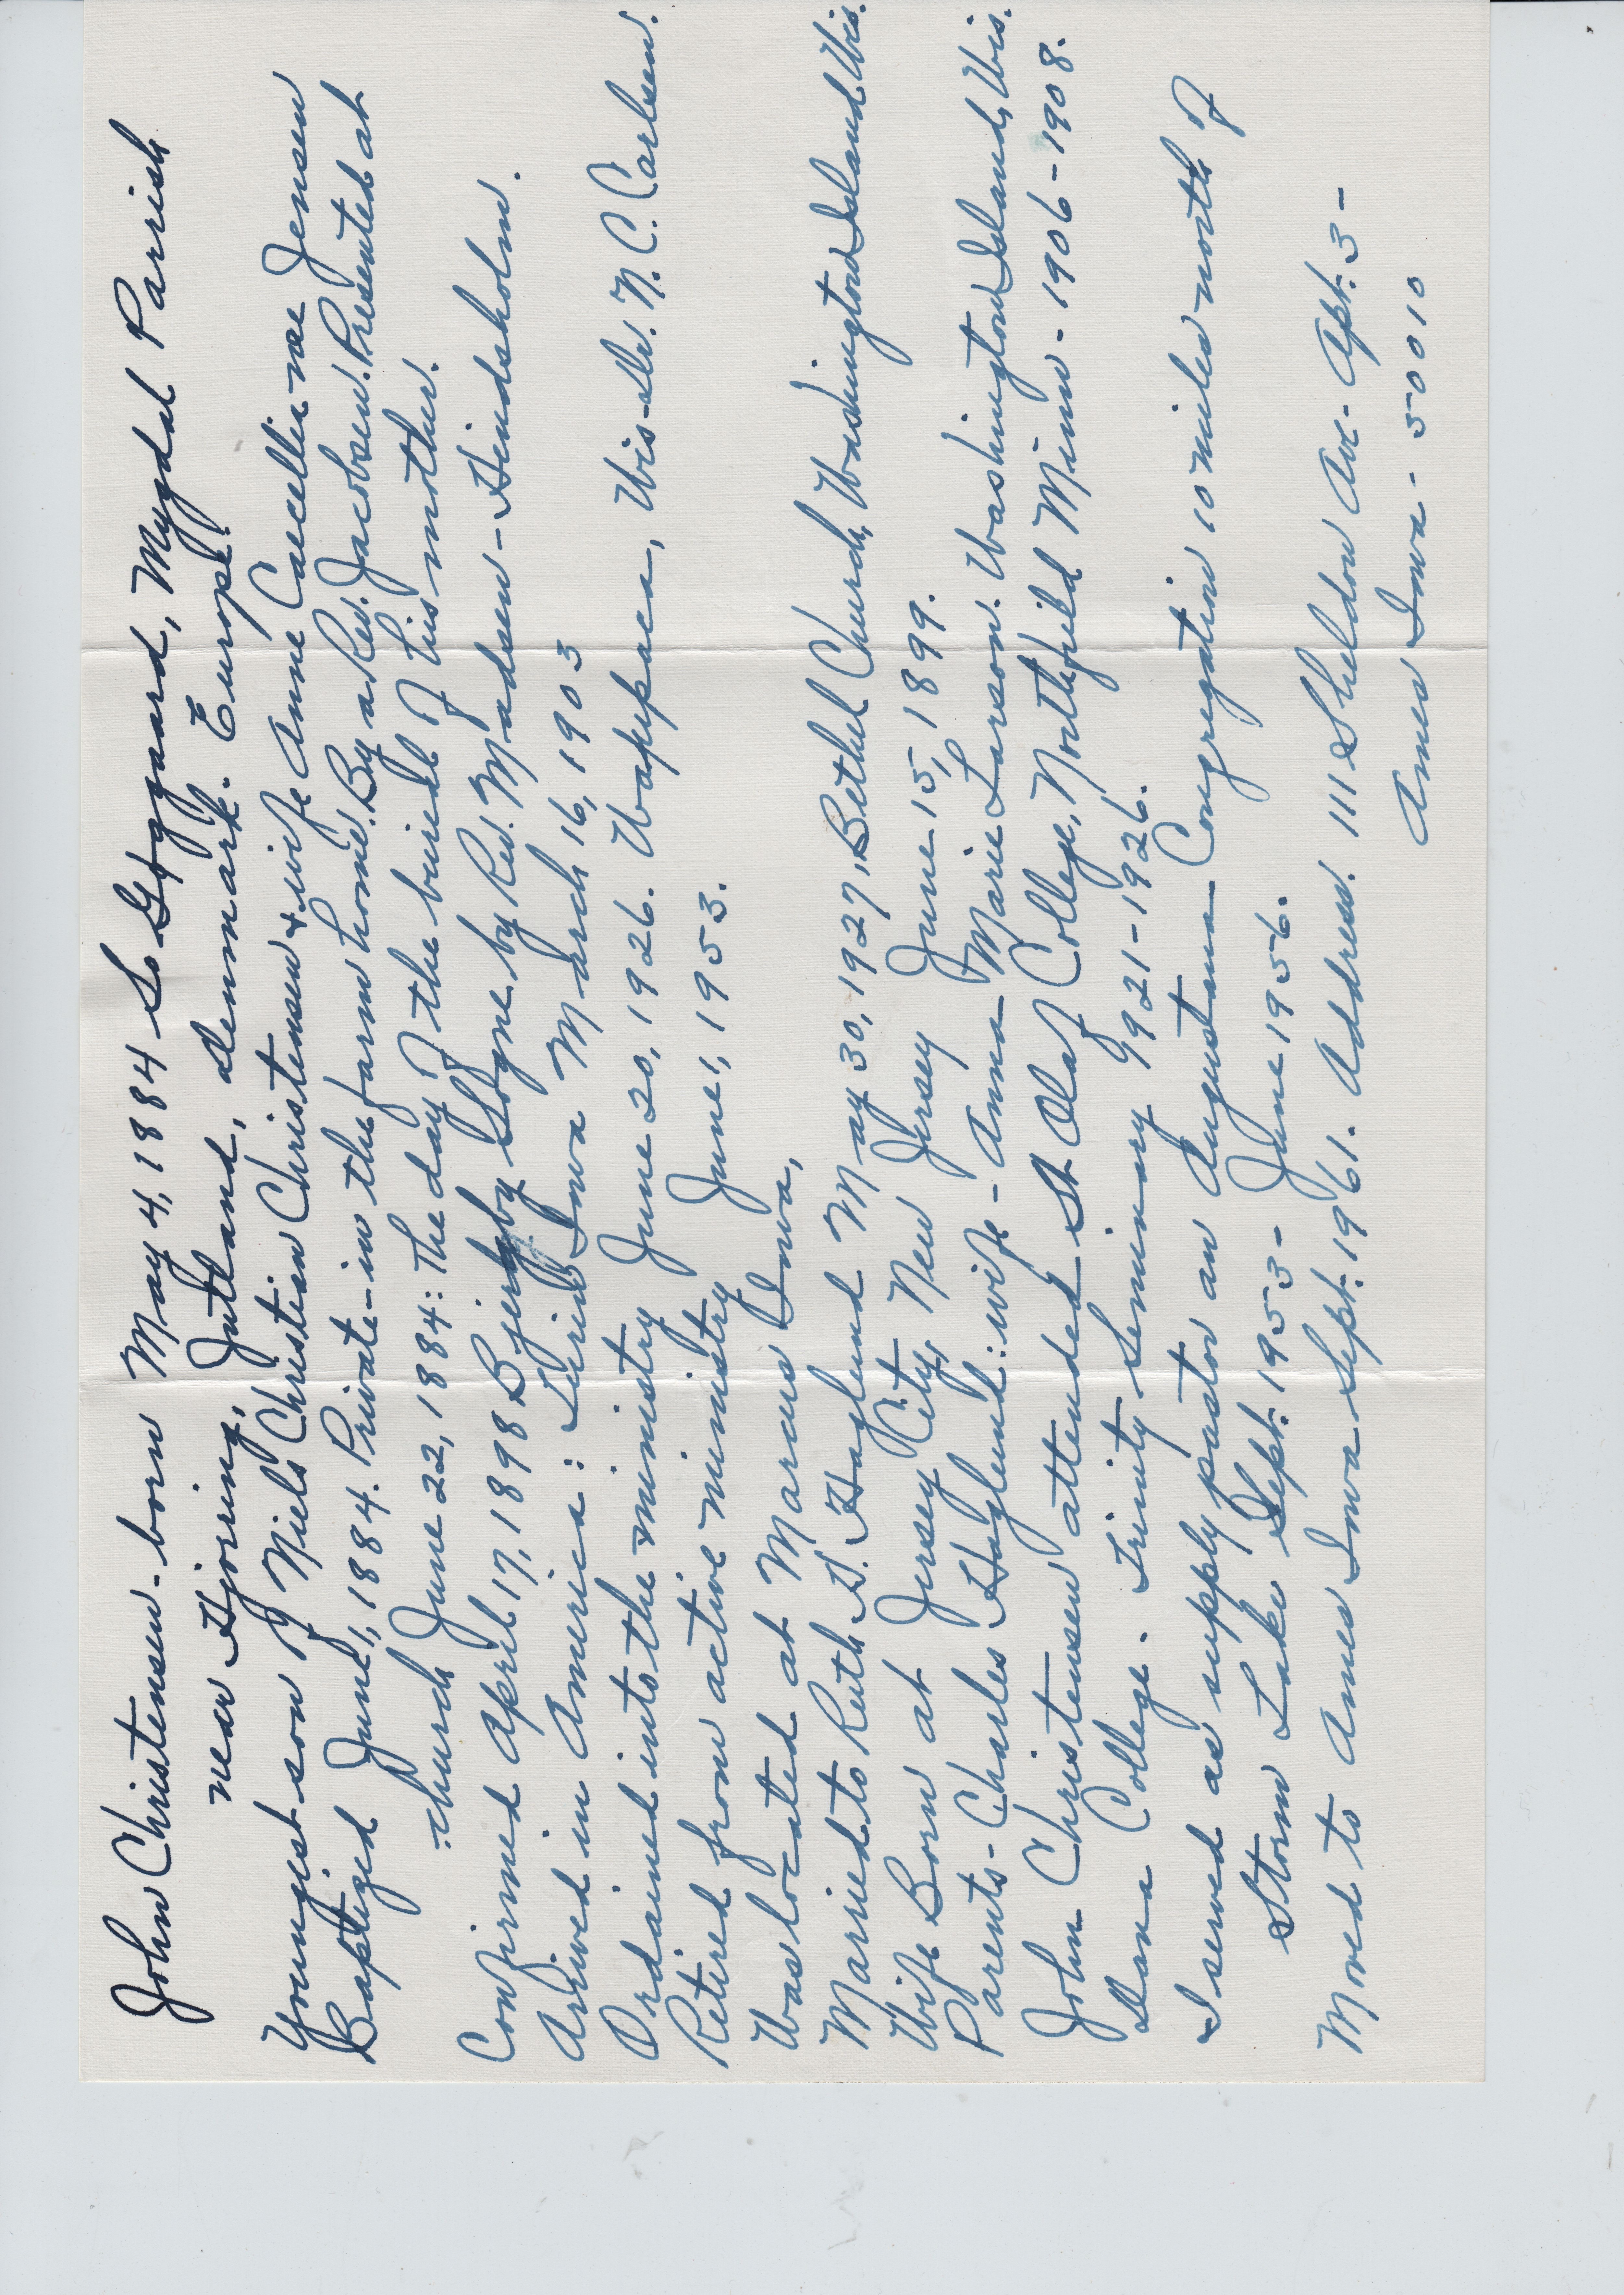 John Christensen - born May 4, 1884 So Gógaard, Mygdal Parish
near Hjoring, Jutland, denmark. Europe.
Youngest son of Niels Christian Christensen & wife Anne Caecelie née Jensen
Baptized June 1, 1884. Private - in the farm home. By a Rev. Jacobsen. Presented at
church June 22, 1884: The day of the burial of his mother.
Confirmed April 17, 1898 Bjergby Sogne by Rev. Madsen - Hindsholm.
Arrived in America: Iowa March 16, 1903
Ordained into the ministry June 20, 1926. Waupaca, Wis - Dr. N. C. Carlsen.
Retired from active ministry June 1, 1953.
Was located at Marcus Iowa,
Married to Ruth H. Haglund May 30, 1927, Bethel Church, Washington Island Wis.
Wife Born at Jersey City, New Jersey June 15, 1899.
Parents - Charles Haglund: wife - Anna Marie Larson. Washington Island, Wis.
John Christensen attended St. Olaf College, Northfield Minn - 1906 - 1908.
Dana College. Trinity Seminary 1921 - 1926.
I served as supply pastor an Augustana Congregation 10 miles north of
Storm Lake Sept. 1953 - June 1956.
Moved to Ames Iowa Sept. 1961. Address. 111 Sheldon Ave - Apt. 3 -
Ames Iowa - 50010